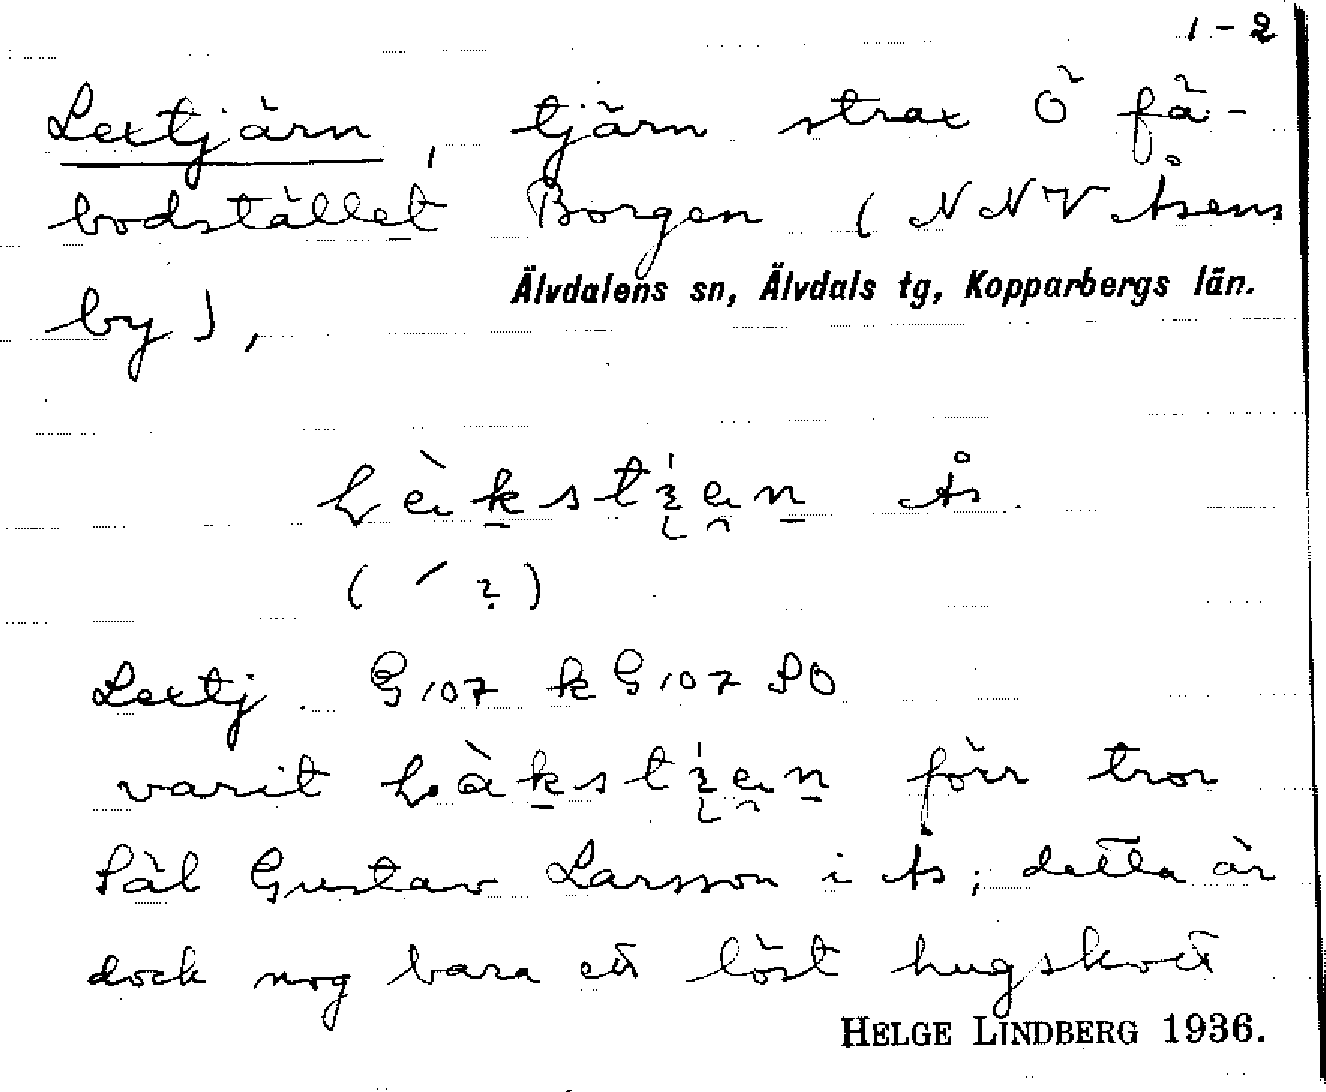 1-2
Lextjärn, tjärn strax Ö fä-
bodstället Borgen (NNV Åsens
Älvdalens sn, Älvdals tg, Kopparbergs län.
by),
Ås
( ´ ? )
Lextj G107 k G107 SO
varit förr tror
Pål Gustav Larsson i Ås; detta är
dock nog bara ett löst hugskott
HELGE LINDBERG 1936.